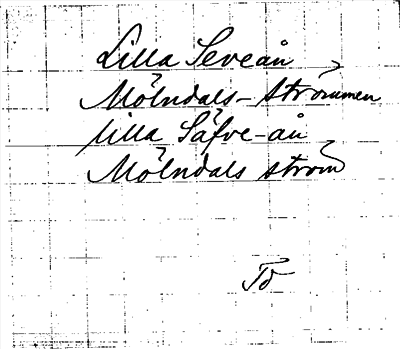 Lilla Seveån
Mölndals-strömmen
Lilla Säfve-ån
Mölndals ström
To